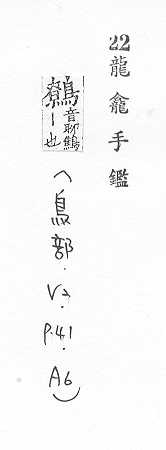 22龍龕手鑑
鷯音聊鷦丨也(鳥部.V2.p.41.A6)